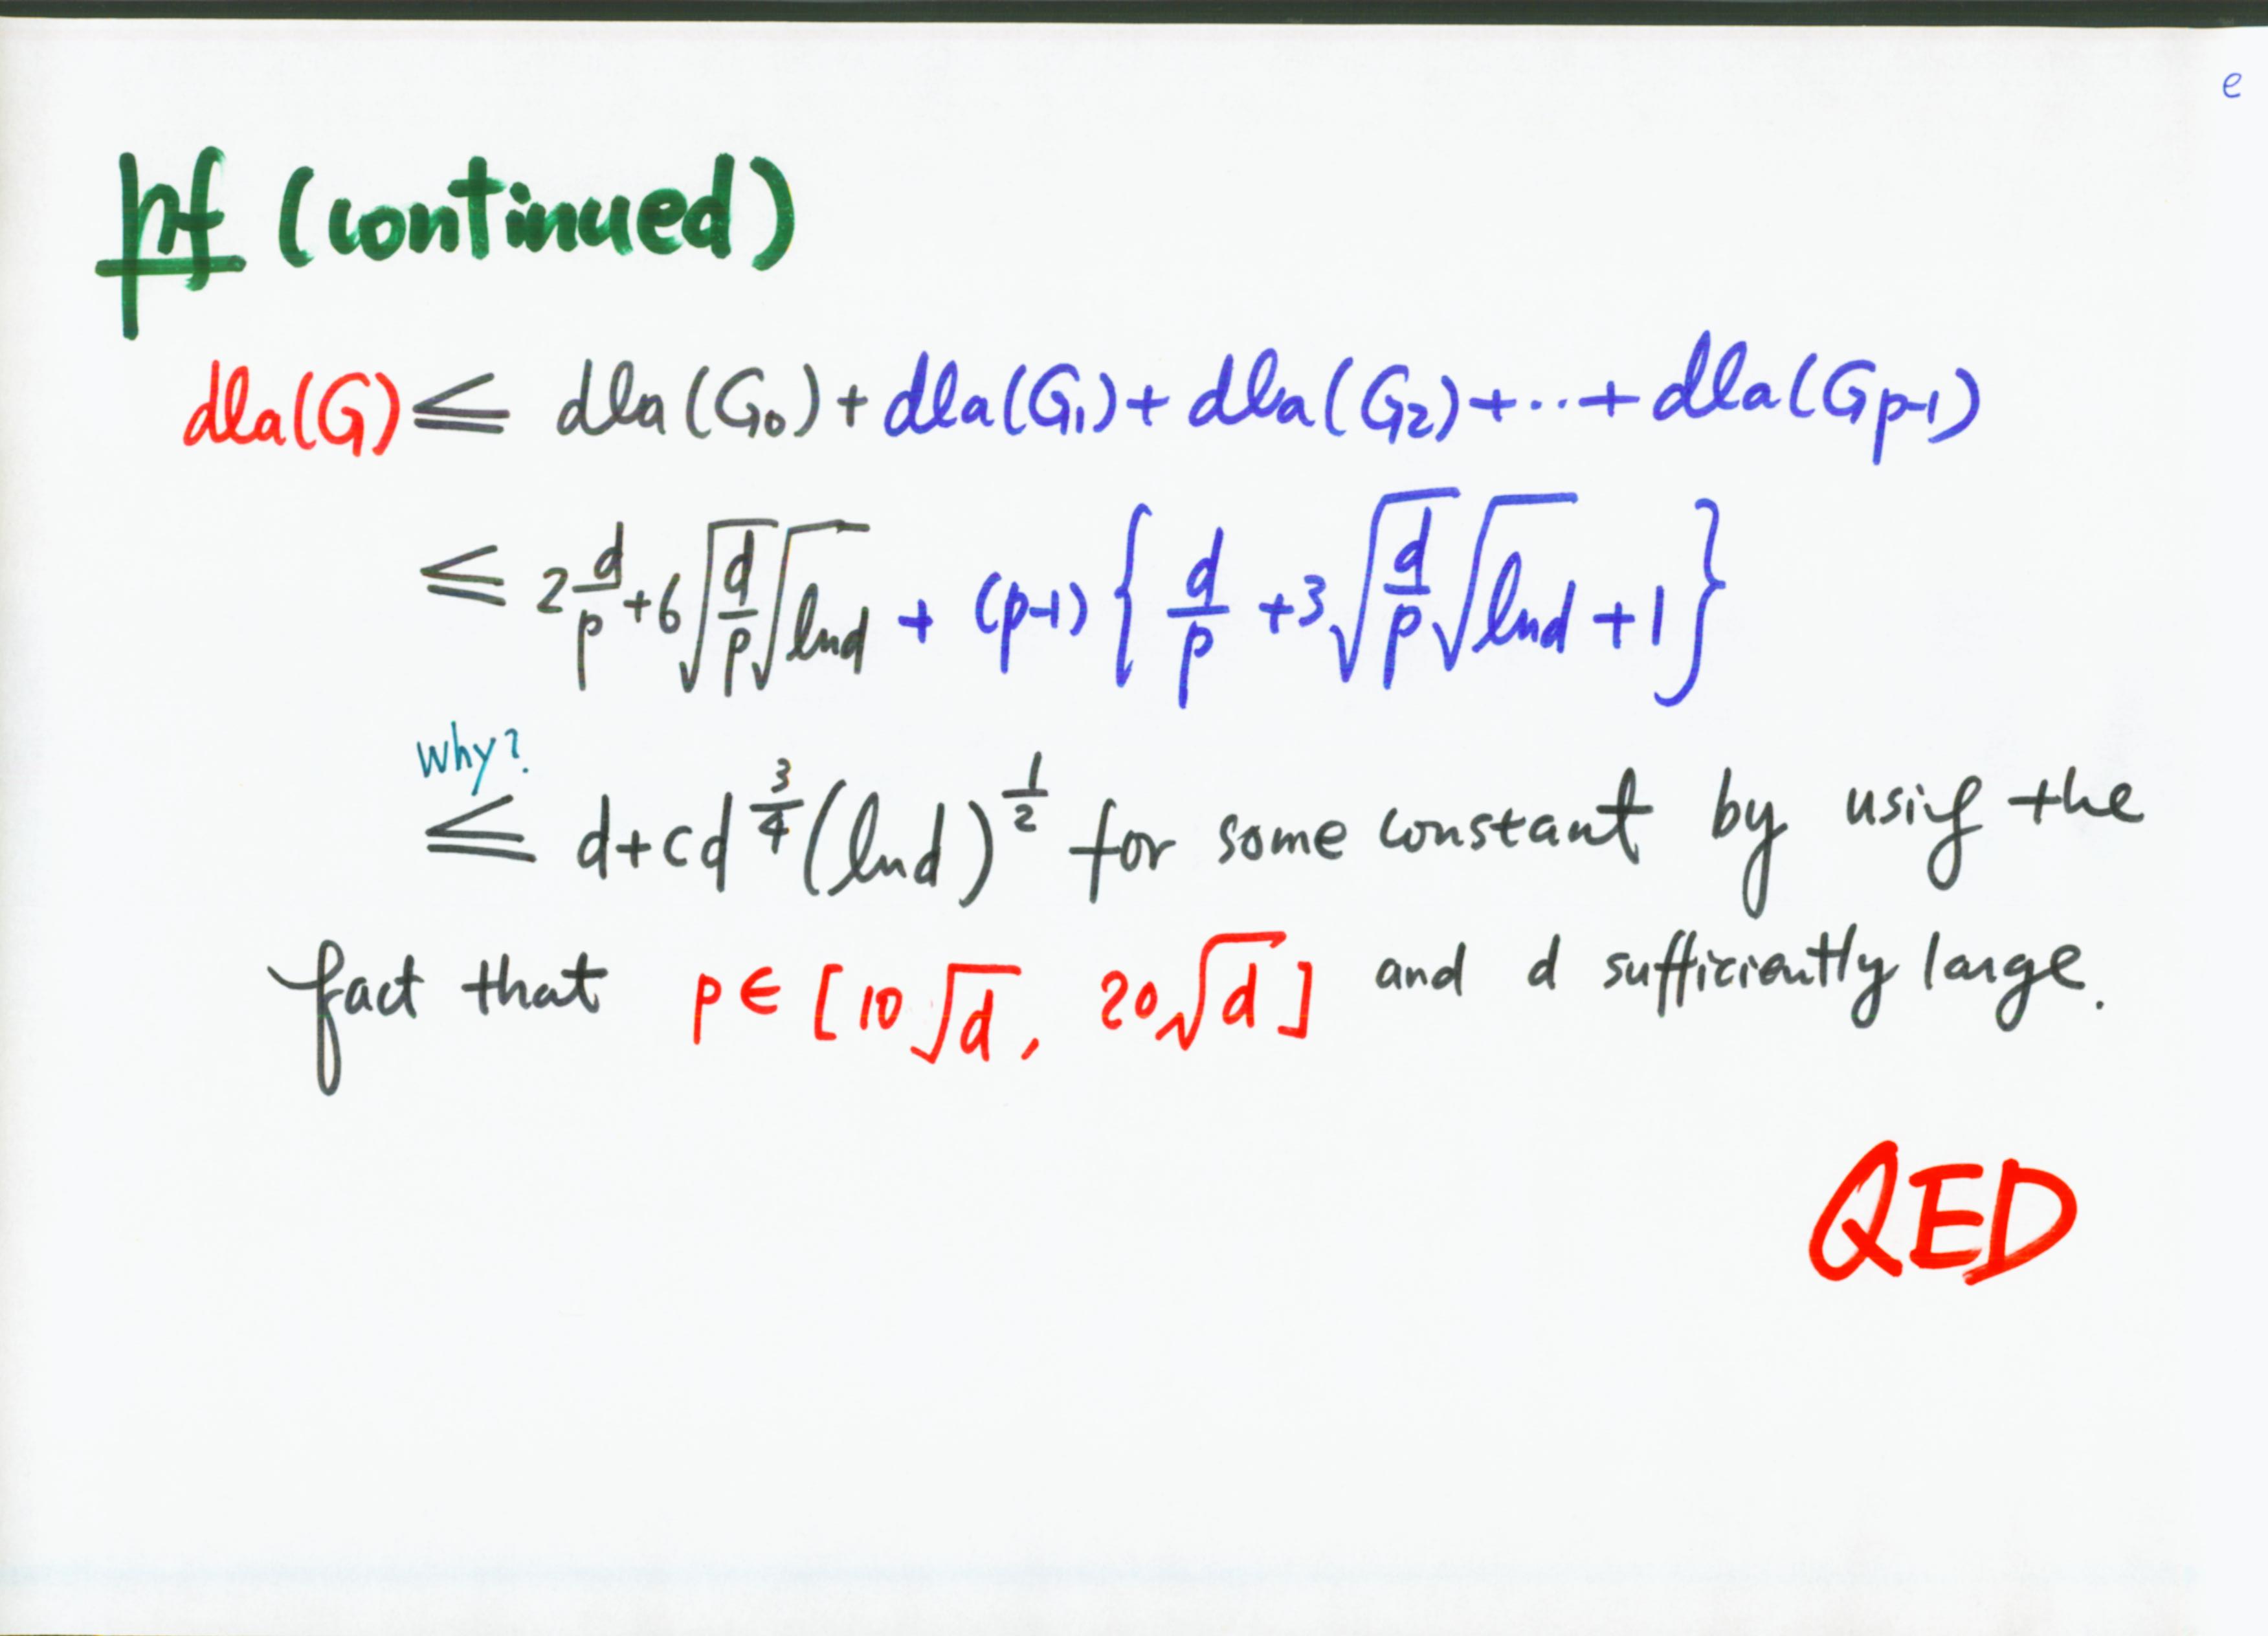 e
pf (continued)
dla(G) ≤ dla(G₀) + dla(G₁) + dla(G₂) + ·· + dla(Gₚ₋₁)
≤ 2 d/p + 6 √(d/p) √(ln d) + (p-1) { d/p + 3 √(d/p) √(ln d) + 1 }
Why?
≤ d + c d^(3/4) (ln d)^(1/2) for some constant by using the
fact that p ∈ [10√d, 20√d] and d sufficiently large.
QED